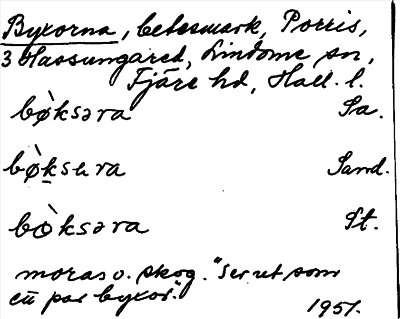 Byxorna, betesmark, Porris,
3 Hassungared, Lindome sn,
Fjäre hd, Hall. l.
bø̀ksəra Sa.
bø̀ksera Sand.
bòksəra St.
moras o. skog. "Ser ut som
ett par byxor".
1951.